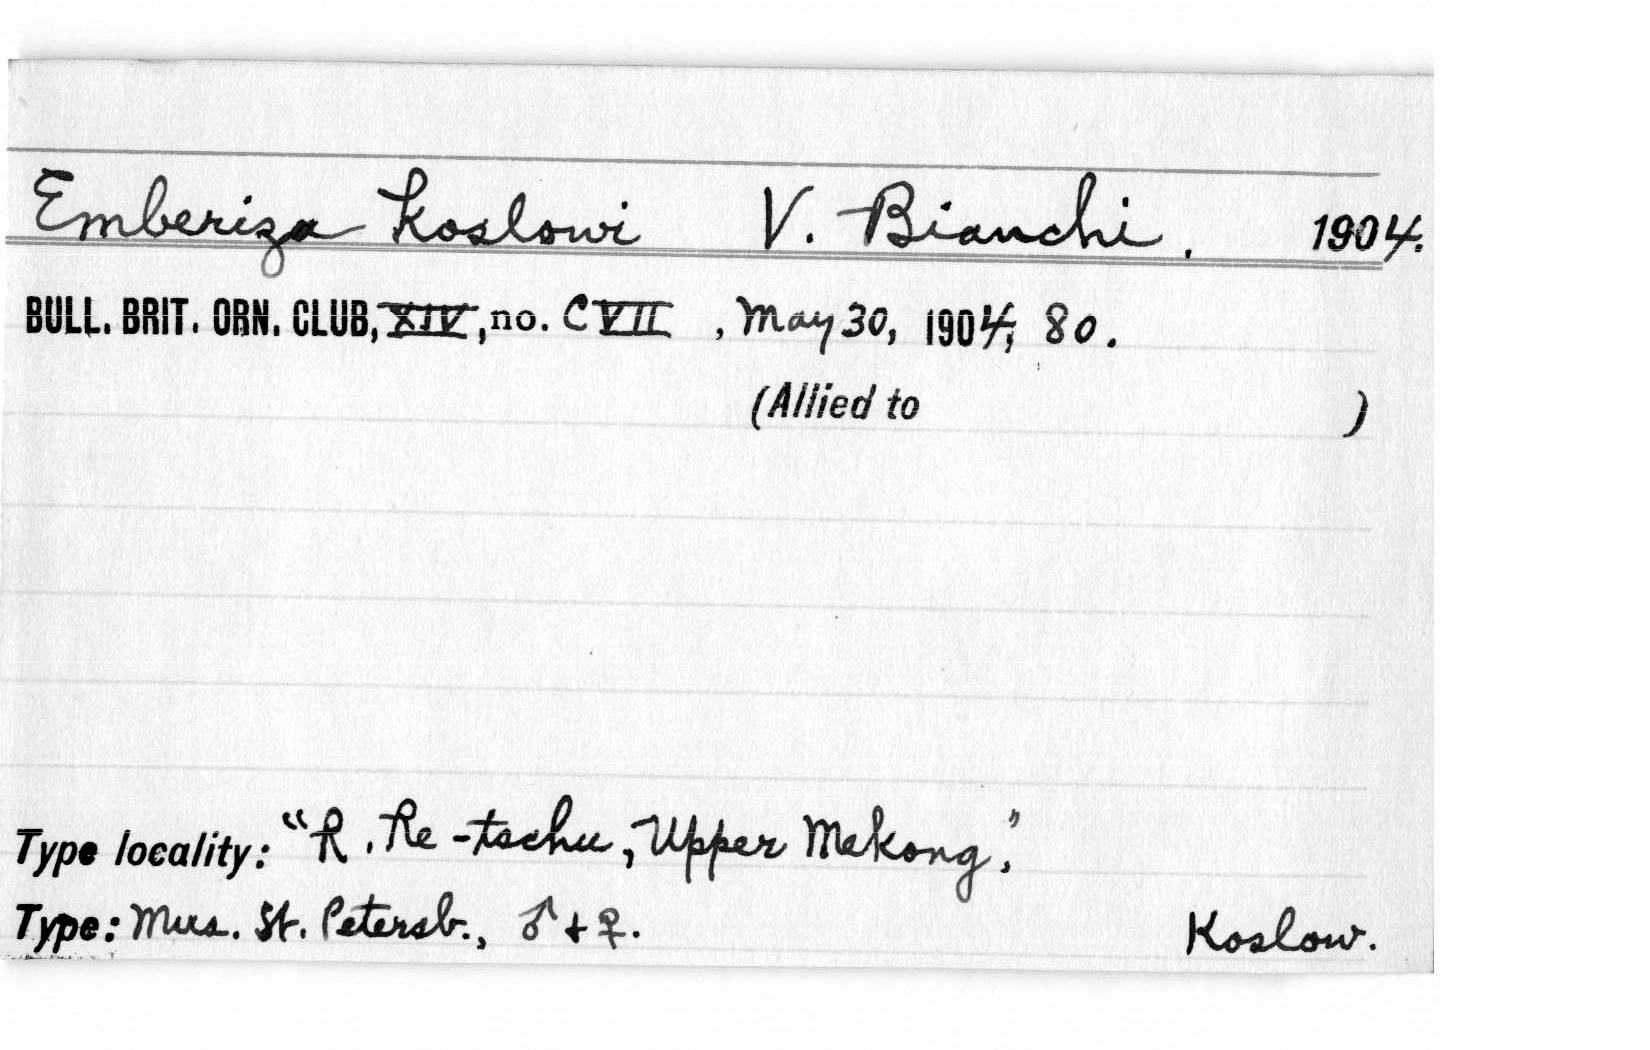 Emberiza koslowi V. Bianchi, 1904.
BULL. BRIT. ORN. CLUB, XIV, no. CVII, May 30, 1904, 80.
(Allied to )
Type locality: "R. Re-tschu, Upper Mekong,"
Type: Mus. St. Petersb., ♂ + ♀. Koslow.